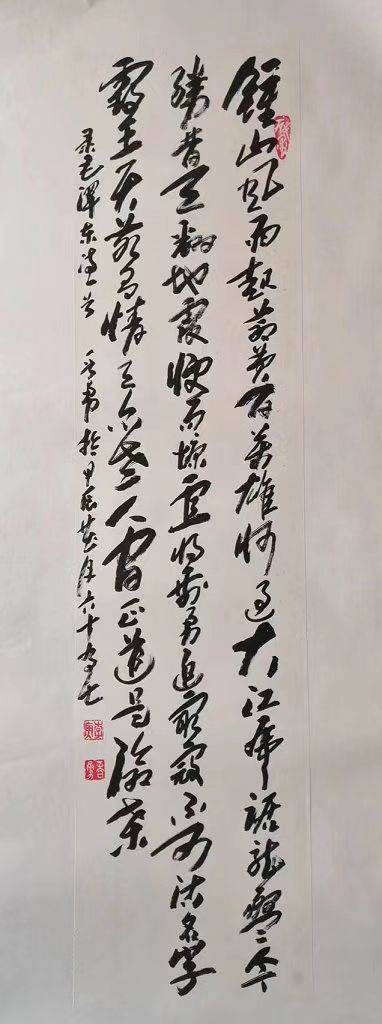 鍾山风雨起蒼黄百萬雄师过大江虎踞龙盤今
勝昔天翻地覆慨而慷宜将剩勇追窮寇不可沽名学
霸王天若有情天亦老人间正道是滄桑
录毛泽东诗一首 於甲辰年六十